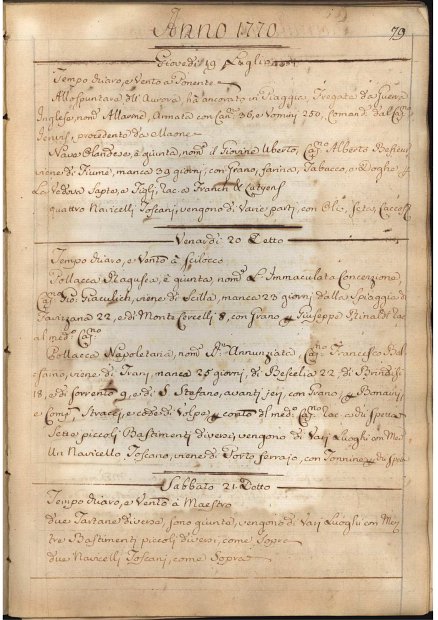 Anno 1770
79
Giovedi 19 Luglio
Tempo chiaro, e Vento à Ponente
Allo spuntare dell' Aurora, hà ancorato in Spiaggia, Fregata da Guerra
Inglese, nom.ª Allarme, Armata con Can. 36, e Uomini 250, Comand. dal Cap.no
Jervis, procedente da Maone
Nave Olandese, è giunta, nom.ª il Giovine Uberto, Cap.no Alberto
viene di Fiume, manca 39 giorni, con Grano, farina, Tabacco, e Doghe
La Vedova e Figli, rac. a Franch &
quattro Navicelli Toscani, vengono di Varie parti, con Olio, Seta,
Venardi 20 Detto
Tempo chiaro, e Vento à Scilocco
Pollacca Ragusea, è giunta, nom.ª L'Immaculata Concezzione
Cap.no Gio: viene di Scilla, manca 23 giorni dalla Spiaggia di
22, e di Monte 8, con Grano Giuseppe Rinaldi rac.
al med.º Cap.no
Pollacca Napoletana, nom.ª S.ma Annunziata Cap.no Francesco
viene di Trani, manca 25 giorni, di 22, di Brindisi
18, e di Sorrento 9, e di S. Stefano, avanti jeri, con Grano,
e Comp.
Sette piccoli Bastimenti diversi, vengono di Varj Luoghi con
Un Navicello Toscano, viene di Porto ferrajo, con Tonnine
Sabbato 21 Detto
Tempo chiaro, e Vento à Maestro
due Tartane diverse, sono giunte, vengono di Varj Luoghi con
tre Bastimenti piccoli diversi, come Sopra
due Navicelli Toscani, come Sopra